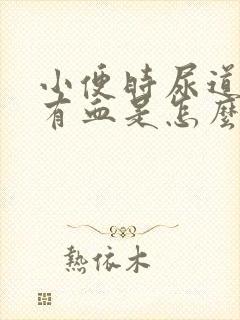 小便時尿道
有血是怎麽
熱依木